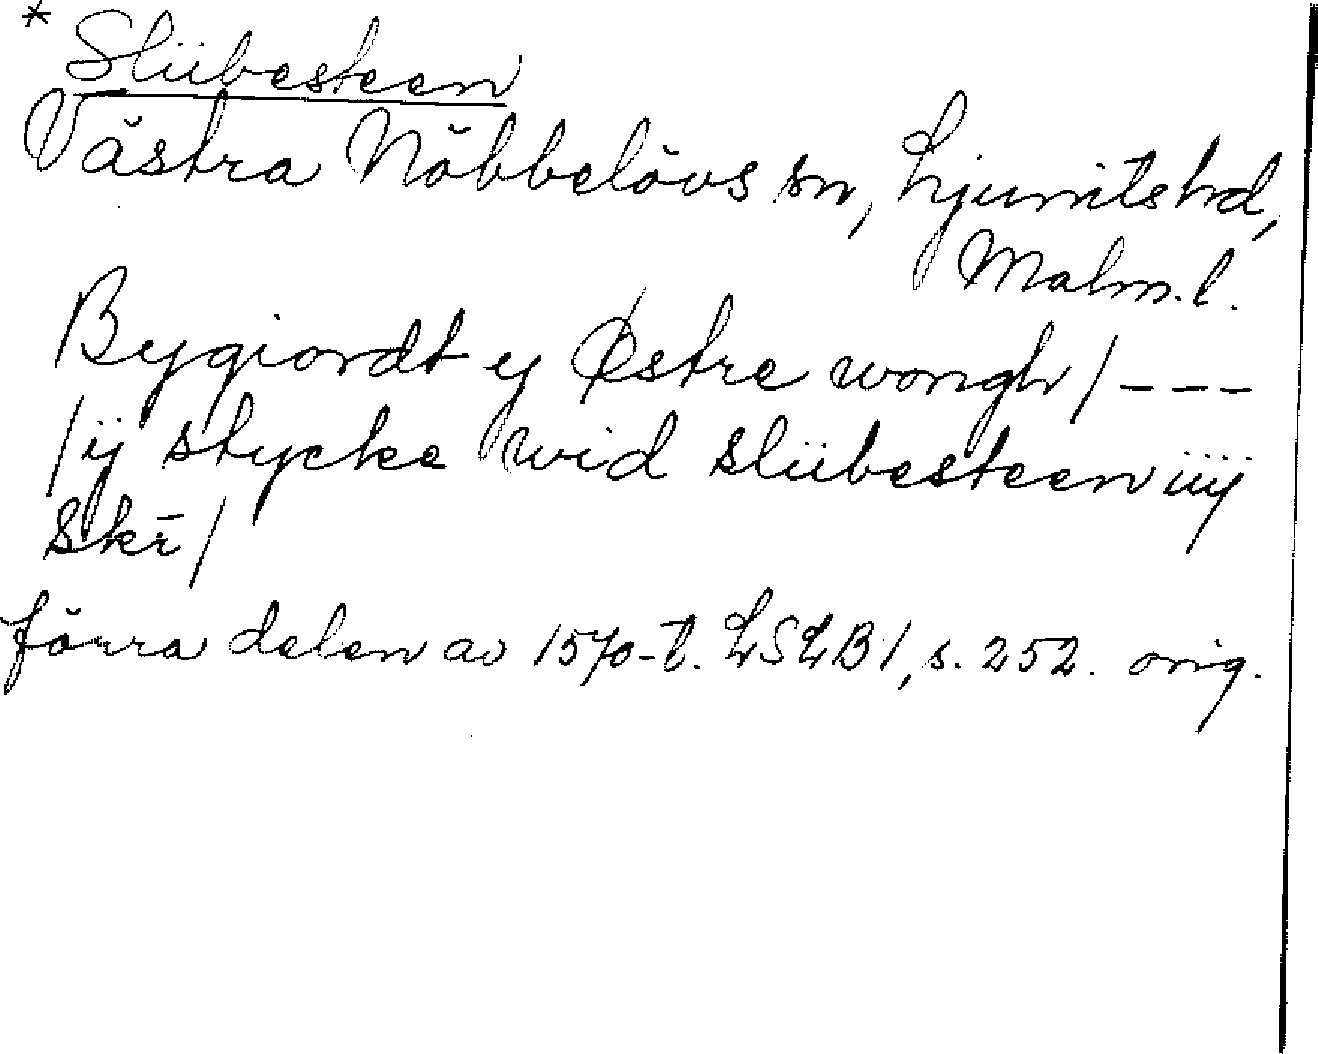 * Slübesteen
Västra Nöbbelövs sn, Ljunits hd,
Malm.l.
Bygiordt y Østre wongh / - - -
/ ij stycke wid slübesteen iiij
skr̄ /
förra delen av 1570-t. LSLB 1, s. 252. orig.